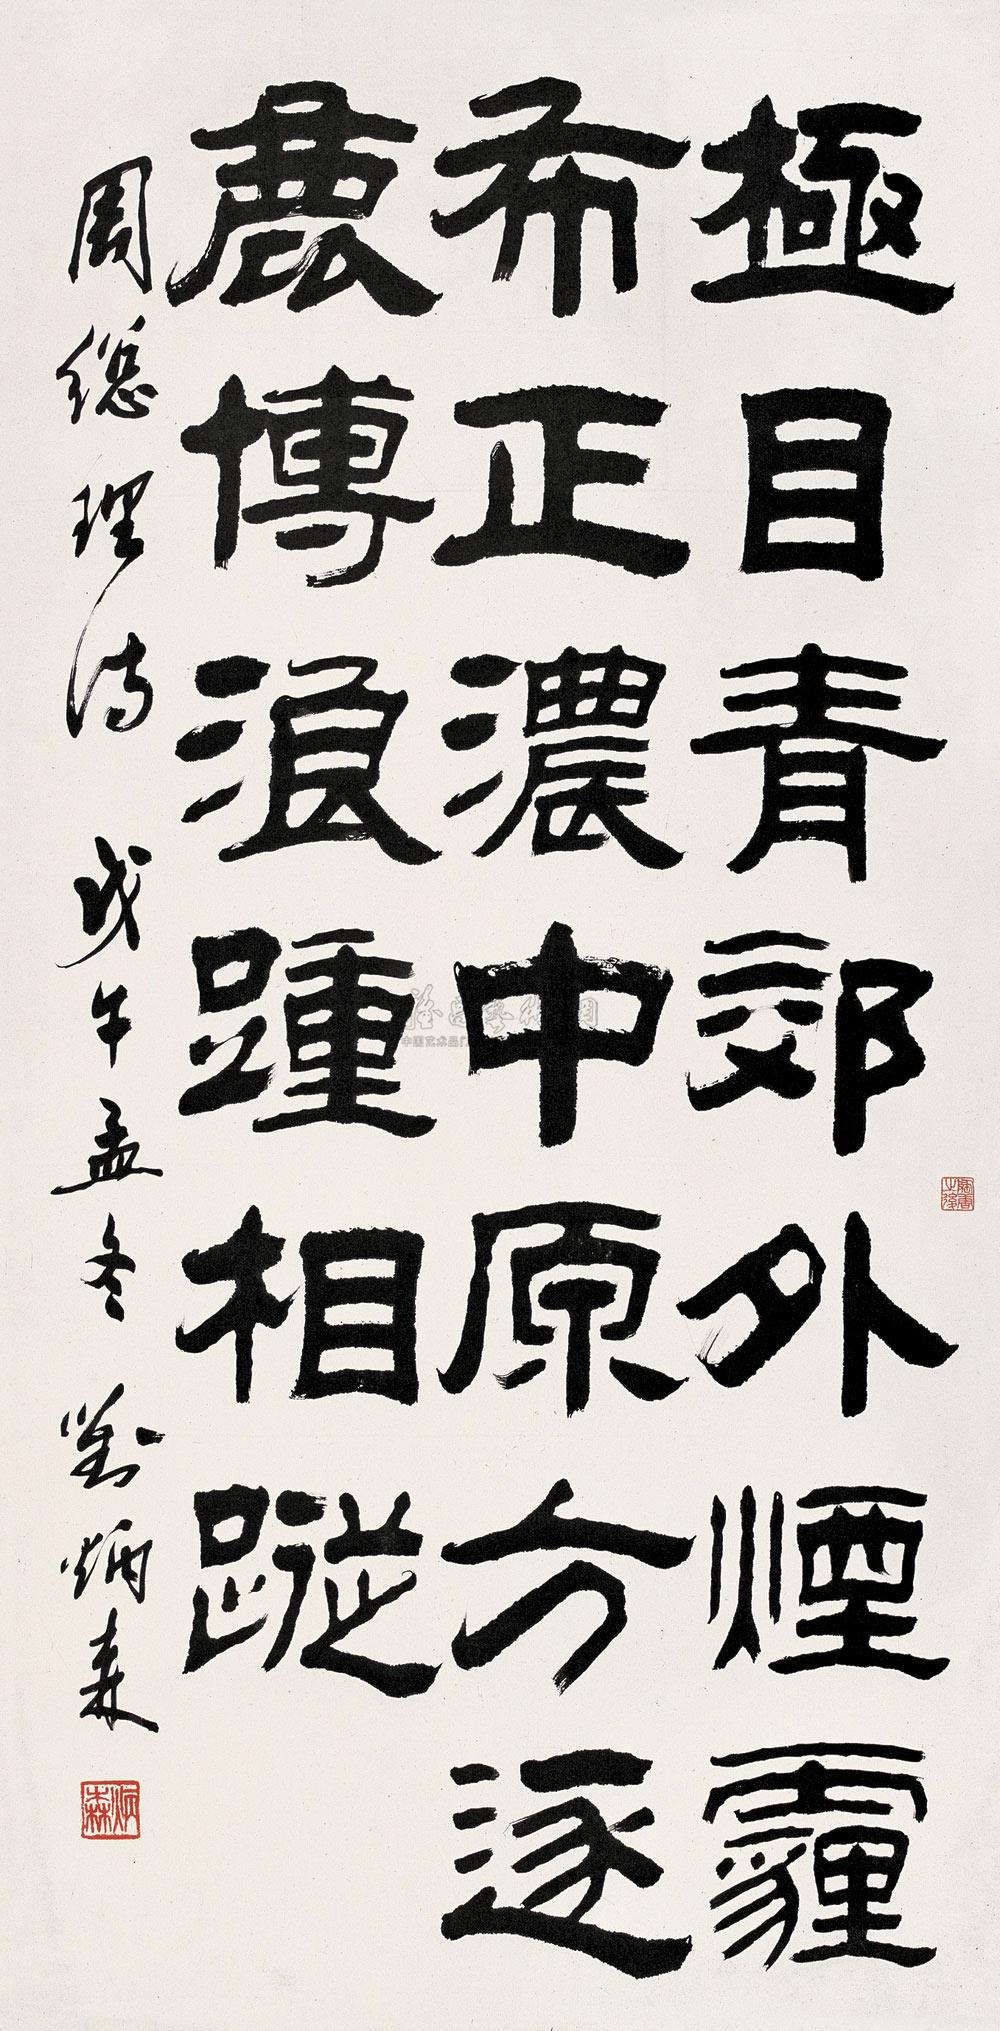 極目青郊外煙霾
布正濃中原方逐
鹿博浪踵相蹤
周總理詩 戊午孟冬 劉炳森
炳森
中国艺术品